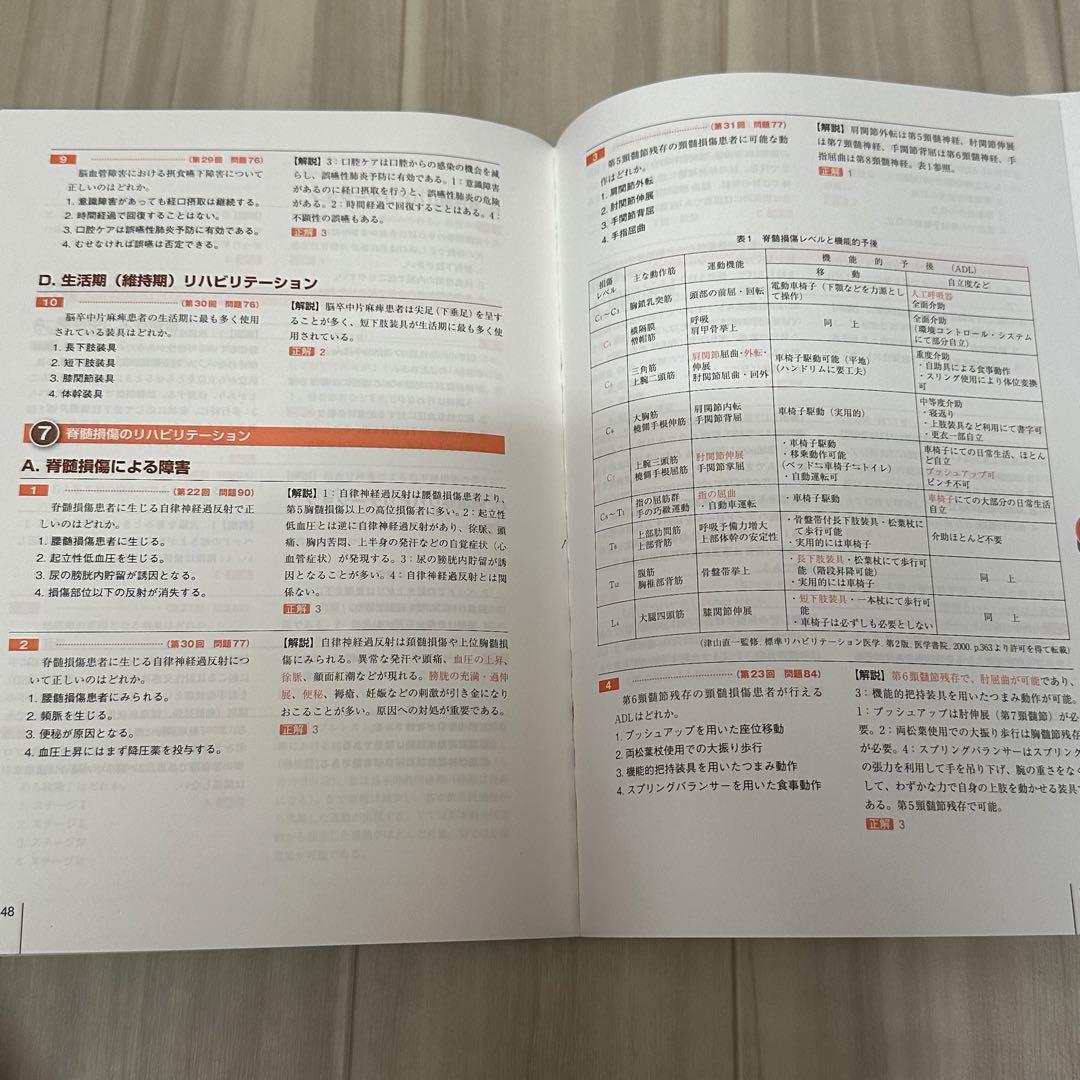 9 (第29回 問題76)
脳血管障害における摂食嚥下障害について
正しいのはどれか。
1. 意識障害があっても経口摂取は継続する。
2. 時間経過で回復することはない。
3. 口腔ケアは誤嚥性肺炎予防に有効である。
4. むせなければ誤嚥は否定できる。
【解説】3：口腔ケアは口腔からの感染の機会を減
らし、誤嚥性肺炎予防に有効である。1：意識障害
があるのに経口摂取を行うと、誤嚥性肺炎の危険
がある。2：時間経過で回復することはある。4：
不顕性の誤嚥もある。
正解 3
D. 生活期（維持期）リハビリテーション
10 (第30回 問題76)
脳卒中片麻痺患者の生活期に最も多く使用
されている装具はどれか。
1. 長下肢装具
2. 短下肢装具
3. 膝関節装具
4. 体幹装具
【解説】脳卒中片麻痺患者は尖足（下垂足）を呈す
ることが多く、短下肢装具が生活期に最も多く使
用されている。
正解 2
7 脊髄損傷のリハビリテーション
A. 脊髄損傷による障害
1 (第22回 問題90)
脊髄損傷患者に生じる自律神経過反射で正
しいのはどれか。
1. 腰髄損傷患者に生じる。
2. 起立性低血圧を生じる。
3. 尿の膀胱内貯留が誘因となる。
4. 損傷部位以下の反射が消失する。
【解説】1：自律神経過反射は腰髄損傷患者より、
第5胸髄損傷以上の高位損傷者に多い。2：起立性
低血圧とは逆に自律神経過反射があり、徐脈、頭
痛、胸内苦悶、上半身の発汗などの自覚症状（心
血管症状）が発現する。3：尿の膀胱内貯留が誘
因となることが多い。4：自律神経過反射とは関
係ない。
正解 3
2 (第30回 問題77)
脊髄損傷患者に生じる自律神経過反射につ
いて正しいのはどれか。
1. 腰髄損傷患者にみられる。
2. 頻脈を生じる。
3. 便秘が原因となる。
4. 血圧上昇にはまず降圧薬を投与する。
【解説】自律神経過反射は頚髄損傷や上位胸髄損
傷にみられる。異常な発汗や頭痛、血圧の上昇、
徐脈、顔面紅潮などが現れる。膀胱の充満・過伸
展、便秘、褥瘡、妊娠などの刺激が引き金になり
おこることが多い。原因への対処が重要である。
正解 3
48
3 (第31回 問題77)
第5頸髄節残存の頸髄損傷患者に可能な動
作はどれか。
1. 肩関節外転
2. 肘関節伸展
3. 手関節背屈
4. 手指屈曲
【解説】肩関節外転は第5頸髄神経、肘関節伸展
は第7頸髄神経、手関節背屈は第6頸髄神経、手
指屈曲は第8頸髄神経。表1参照。
正解 1
表1 脊髄損傷レベルと機能的予後
損傷レベル 主な動作筋 運動機能 機能的予後（ADL）
移動 自立度など
C1〜C3 胸鎖乳突筋 頭部の前屈・回転 電動車椅子（下顎などを力源として操作） 人工呼吸器 全面介助
C4 横隔膜 僧帽筋 呼吸 肩甲骨挙上 同上 全面介助（環境コントロール・システムにて部分自立）
C5 三角筋 上腕二頭筋 肩関節屈曲・外転・伸展 肘関節屈曲・回外 車椅子駆動可能（平地）（ハンドリムに要工夫） 重度介助 ・自助具による食事動作 ・スリング使用により体位変換可
C6 大胸筋 橈側手根伸筋 肩関節内転 手関節背屈 車椅子駆動（実用的） 中等度介助 ・寝返り ・上肢装具など利用にて書字可 ・更衣一部自立
C7 上腕三頭筋 橈側手根屈筋 肘関節伸展 手関節掌屈 ・車椅子駆動 ・移乗動作可能（ベッド⇆車椅子⇆トイレ） ・自動車運転可 車椅子にての日常生活、ほとんど自立 プッシュアップ可 ピンチ不可
C8〜T1 指の屈筋群 手の巧緻運動 指の屈曲 ・自動車運転 ・車椅子駆動 車椅子にての大部分の日常生活自立
T6 上部肋間筋 上部背筋 呼吸予備力増大 上部体幹の安定性 ・骨盤帯付長下肢装具・松葉杖にて歩行可能 ・実用的には車椅子 介助ほとんど不要
T12 腹筋 胸椎部背筋 骨盤帯挙上 ・長下肢装具・松葉杖にて歩行可能（階段昇降可能） ・実用的には車椅子 同上
L4 大腿四頭筋 膝関節伸展 ・短下肢装具・一本杖にて歩行可能 ・車椅子は必ずしも必要としない 同上
（津山直一監修. 標準リハビリテーション医学. 第2版. 医学書院. 2000. p.363より許可を得て転載）
4 (第23回 問題84)
第6頸髄節残存の頸髄損傷患者が行える
ADLはどれか。
1. プッシュアップを用いた座位移動
2. 両松葉杖使用での大振り歩行
3. 機能的把持装具を用いたつまみ動作
4. スプリングバランサーを用いた食事動作
【解説】第6頸髄節残存で、肘屈曲が可能であり、
3：機能的把持装具を用いたつまみ動作が可能。
1：プッシュアップは肘伸展（第7頸髄節）が必
要。2：両松葉杖での大振り歩行は胸髄節残存
が必要。4：スプリングバランサーはスプリング
の張力を利用して手を吊り下げ、腕の重さをなく
して、わずかな力で自身の上肢を動かせる装具で
ある。第5頸髄節残存で可能。
正解 3